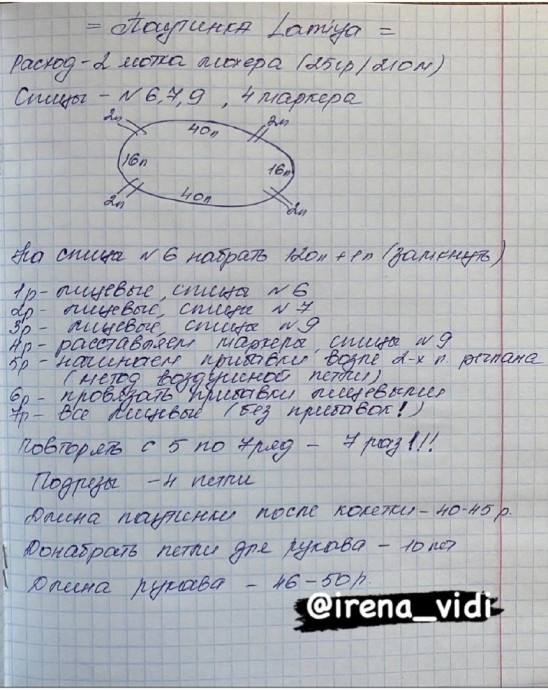 = Паутинка Lamiya =
Расход - 2 мотка мохера (25гр/210м)
Спицы - №6,7,9 , 4 маркера
2п 2п
40п
16п 16п
40п
2п 2п
На спицы №6 набрать 120п + 1п (замкнуть)
1р - лицевые, спицы №6
2р - лицевые, спицы №7
3р - лицевые, спицы №9
4р - расставляем маркеры, спицы №9
5р - начинаем прибавки возле 2-х п. реглана
(метод воздушной петли)
6р - провязать прибавки лицевыми
7р - все лицевые (без прибавок!)
Повторять с 5 по 7 ряд - 7 раз!!!
Подрезы - 4 петли
Длина паутинки после кокетки - 40-45 р.
Донабрать петли для рукава - 10 пет
Длина рукава - 46-50р.
@irena_vidi